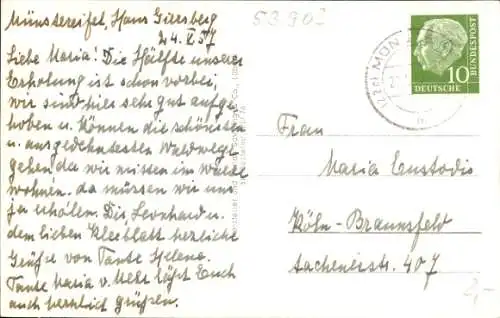 Münstereifel, Haus Giersberg
24. X 57
53902
Liebe Maria! Die Hälfte unserer
Erholung ist schon vorbei,
wir sind hier sehr gut aufge-
hoben u. können die schönsten
u. ausgedehntesten Waldwege
gehen, da wir müssen im Walde
wohnen. da müssen wir uns
ja erholen. Dir Leonhard u.
dem lieben Kleeblatt herzliche
Grüße von Tante Helene.
Tante Maria v. läßt Euch
auch herzlich grüßen.
MÜN
10
DEUTSCHE BUNDESPOST
Frau
Maria Custodis
Köln-Braunsfeld
Aachenerstr. 407
2,-